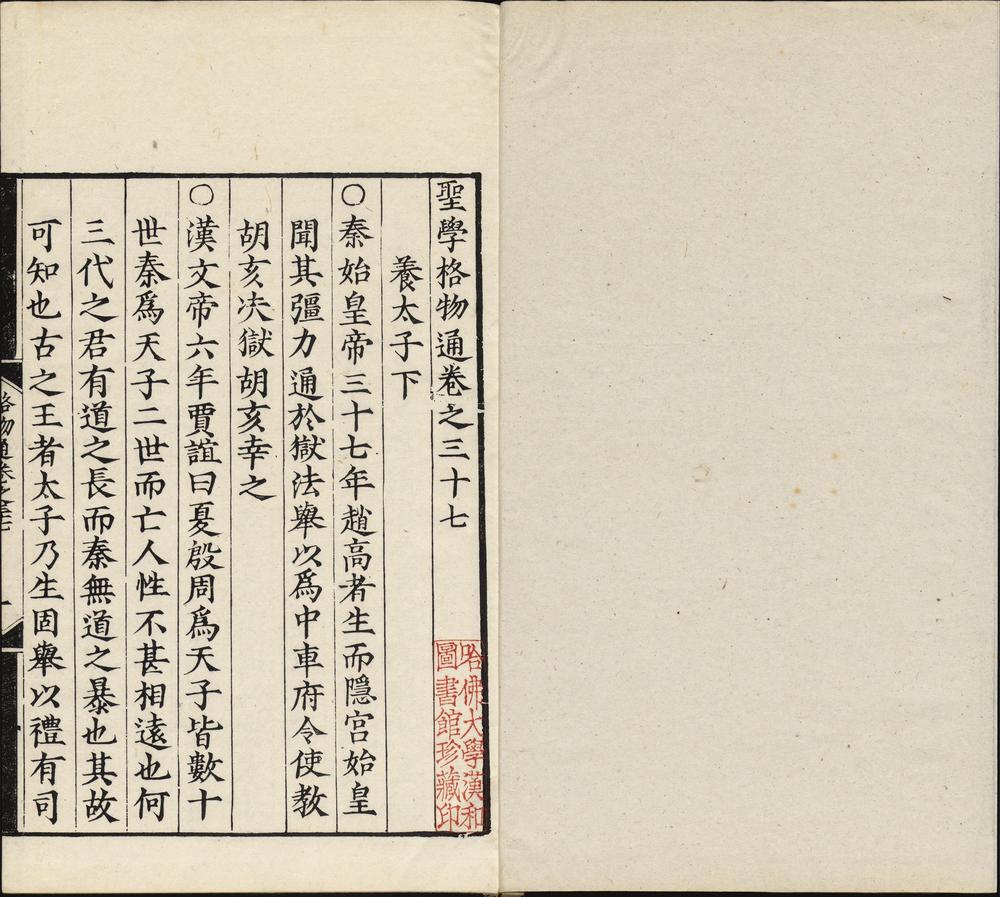 聖學格物通卷之三十七
養太子下
○秦始皇帝三十七年趙高者生而隱宮始皇
聞其彊力通於獄法舉以爲中車府令使教
胡亥决獄胡亥幸之
○漢文帝六年賈誼曰夏殷周爲天子皆數十
世秦爲天子二世而亡人性不甚相遠也何
三代之君有道之長而秦無道之暴也其故
可知也古之王者太子乃生固舉以禮有司
格物通卷之三十七
一
哈佛大學漢和
圖書館珍藏印